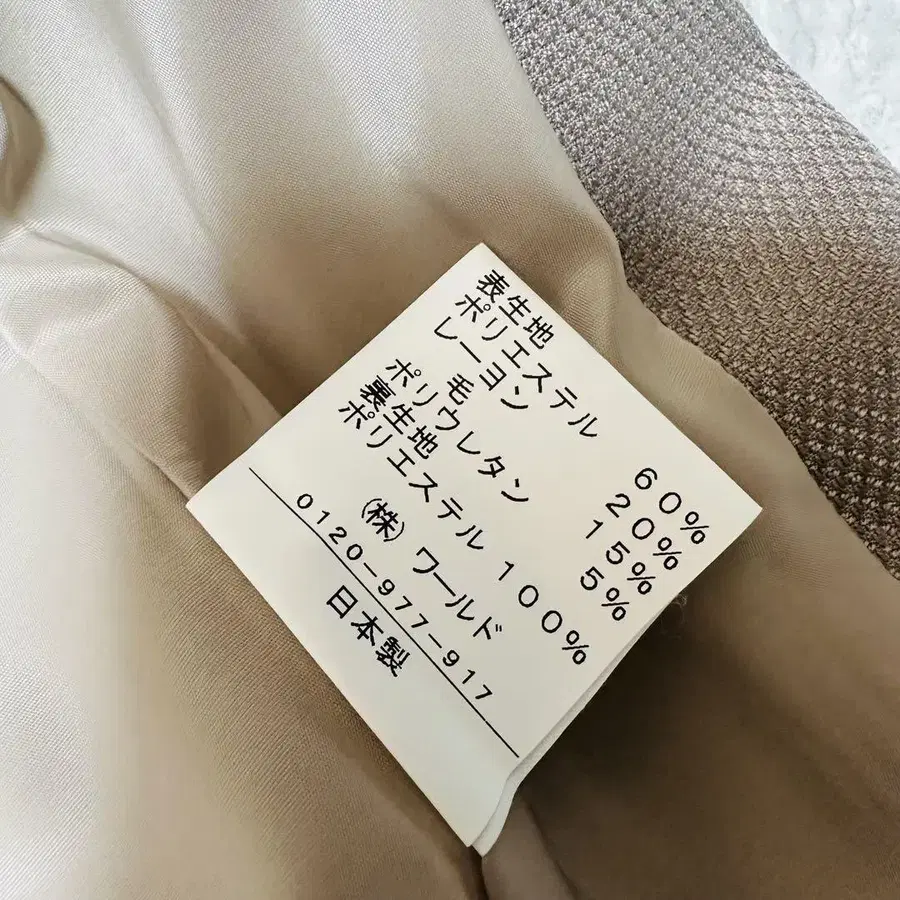 表生地
ポリエステル 60%
レーヨン 20%
毛 15%
ポリウレタン 5%
裏生地
ポリエステル 100%
(株)ワールド
0120-977-917
日本製